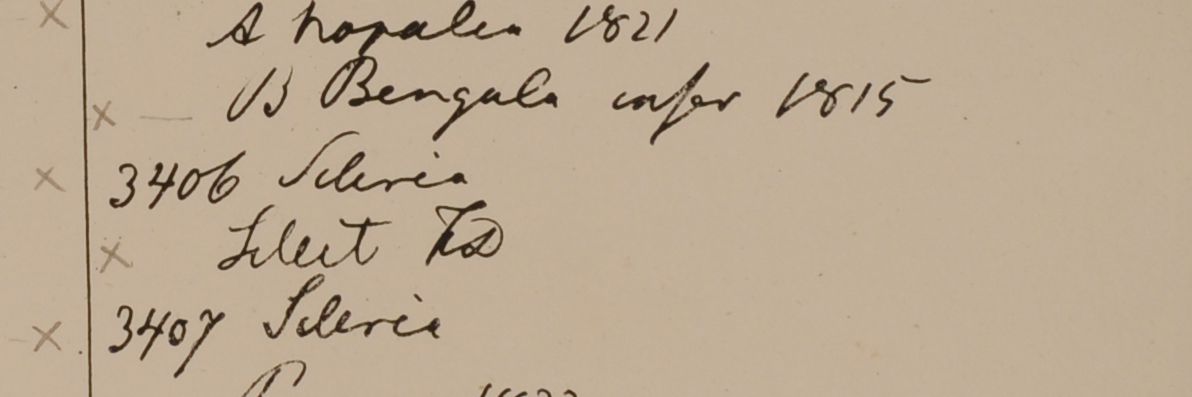 A Napalia 1821
B Bengala infer 1815
3406 Scleria
Silhet FD
3407 Scleria